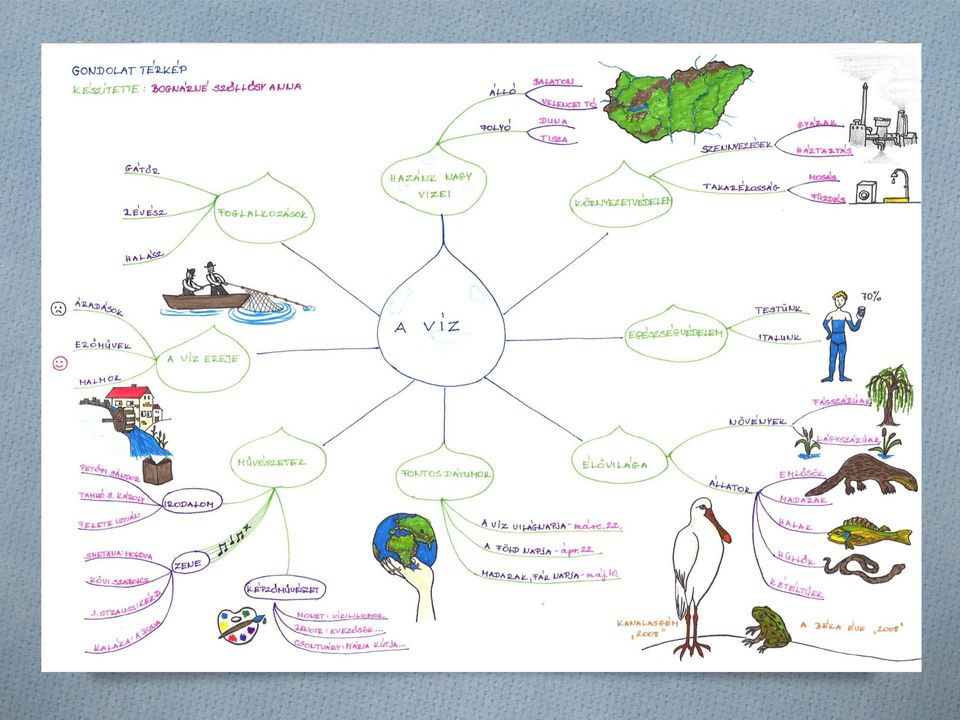 GONDOLAT TÉRKÉP
KÉSZÍTETTE: BOGNÁRNÉ SZŐLLŐSY ANNA
A VÍZ
HAZÁNK NAGY
VIZEI
ÁLLÓ
BALATON
VELENCEI TÓ
FOLYÓ
DUNA
TISZA
KÖRNYEZETVÉDELEM
SZENNYEZÉSEK
GYÁRAK
HÁZTARTÁS
TAKARÉKOSSÁG
MOSÁS
FÜRDÉS
EGÉSZSÉGVÉDELEM
TESTÜNK
ITALUNK
70%
ÉLŐVILÁGA
NÖVÉNYEK
FÁSSZÁRÚAK
LÁGYSZÁRÚAK
ÁLLATOK
EMLŐSÖK
MADARAK
HALAK
HÜLLŐK
KÉTÉLTŰEK
KANALASGÉM
„2008"
A BÉKA ÉVE „2008"
FONTOS DÁTUMOK
A VÍZ VILÁGNAPJA - márc. 22.
A FÖLD NAPJA - ápr. 22.
MADARAK, FÁK NAPJA - máj. 10.
MŰVÉSZETEK
IRODALOM
PETŐFI SÁNDOR
TAMKÓ S. KÁROLY
FEKETE ISTVÁN
ZENE
SMETANA: MOLDVA
KÖVI SZABOLCS
J. STRAUSS: KÉK D.
KALÁKA: A DUNA
KÉPZŐMŰVÉSZET
MONET: VÍZILILIOMOK
RENOIR: EVEZŐSÖK...
CSONTVÁRY: MÁRIA KÚTJA...
A VÍZ EREJE
ÁRADÁSOK
ERŐMŰVEK
MALMOK
FOGLALKOZÁSOK
GÁTŐR
RÉVÉSZ
HALÁSZ